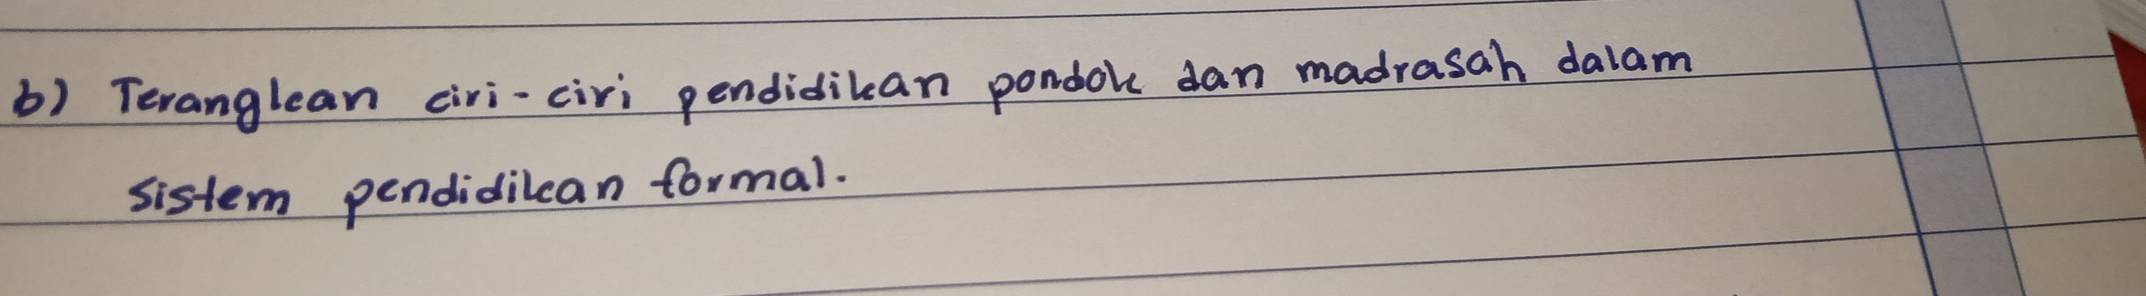 b) Terangkan ciri-ciri pendidikan pondok dan madrasah dalam
sistem pendidikan formal.